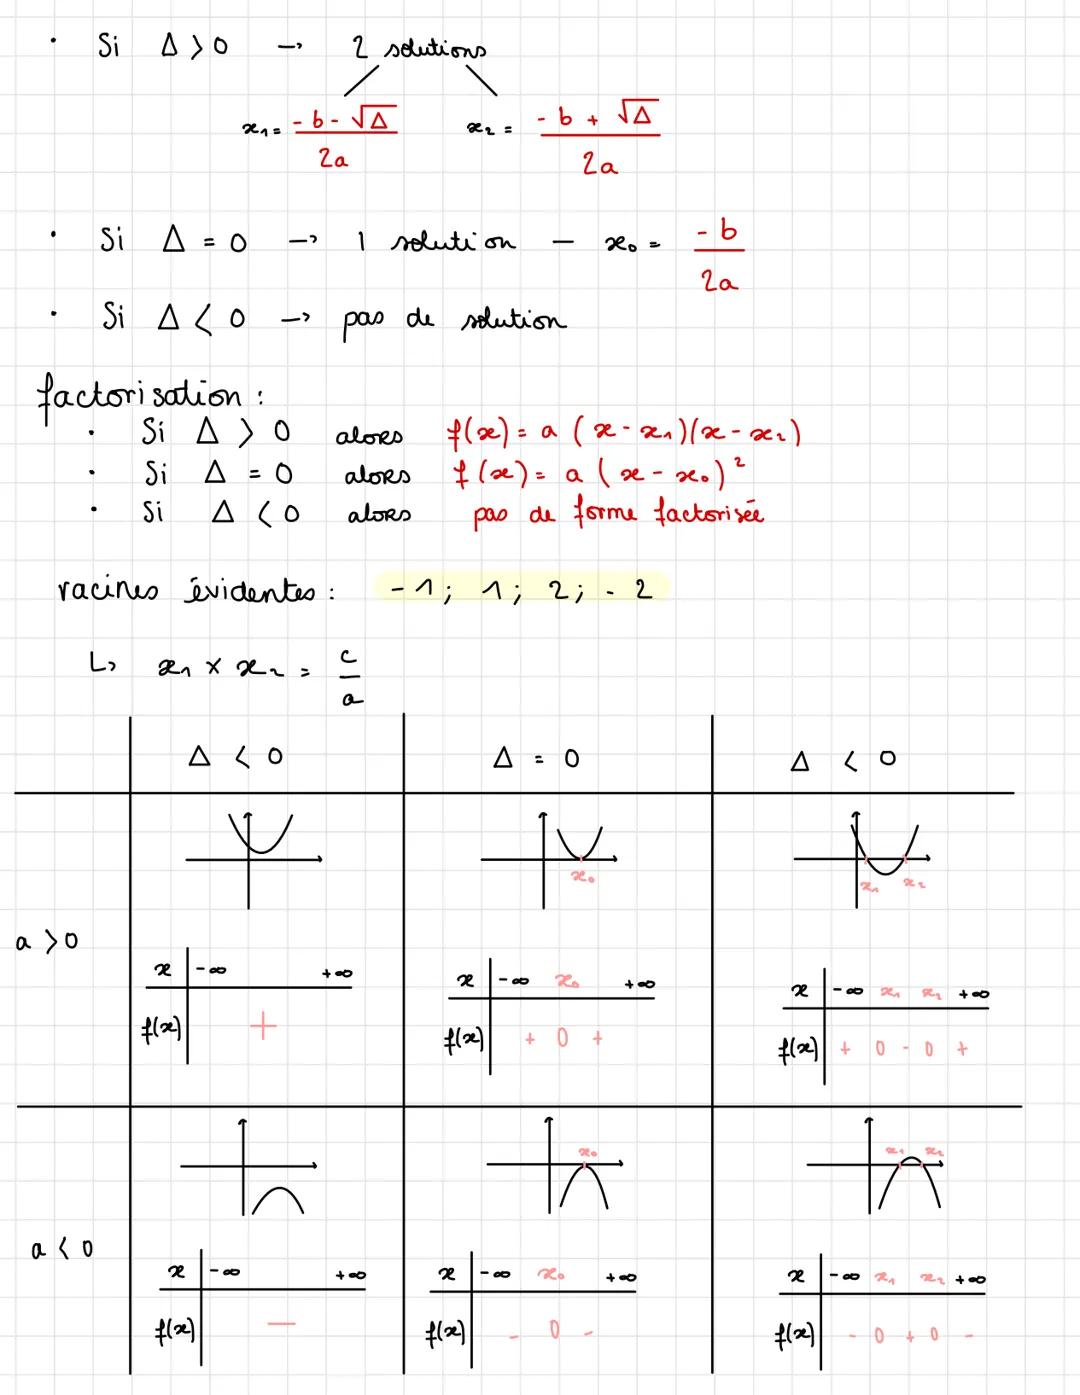 • Si Δ > 0 → 2 solutions
x₁ = (-b - √Δ)/2a    x₂ = (-b + √Δ)/2a
• Si Δ = 0 → 1 solution — x₀ = -b/2a
• Si Δ < 0 → pas de solution
factorisation :
• Si Δ > 0 alors f(x) = a (x - x₁)(x - x₂)
• Si Δ = 0 alors f(x) = a (x - x₀)²
• Si Δ < 0 alors pas de forme factorisée
racines évidentes : -1; 1; 2; -2
↳ x₁ × x₂ = c/a
Δ < 0    Δ = 0    Δ < 0
x₀    x₁ x₂
a > 0
x -∞ +∞    x -∞ x₀ +∞    x -∞ x₁ x₂ +∞
f(x) +    f(x) + 0 +    f(x) + 0 - 0 +
x₀    x₁ x₂
a < 0
x -∞ +∞    x -∞ x₀ +∞    x -∞ x₁ x₂ +∞
f(x) —    f(x) - 0 -    f(x) - 0 + 0 -